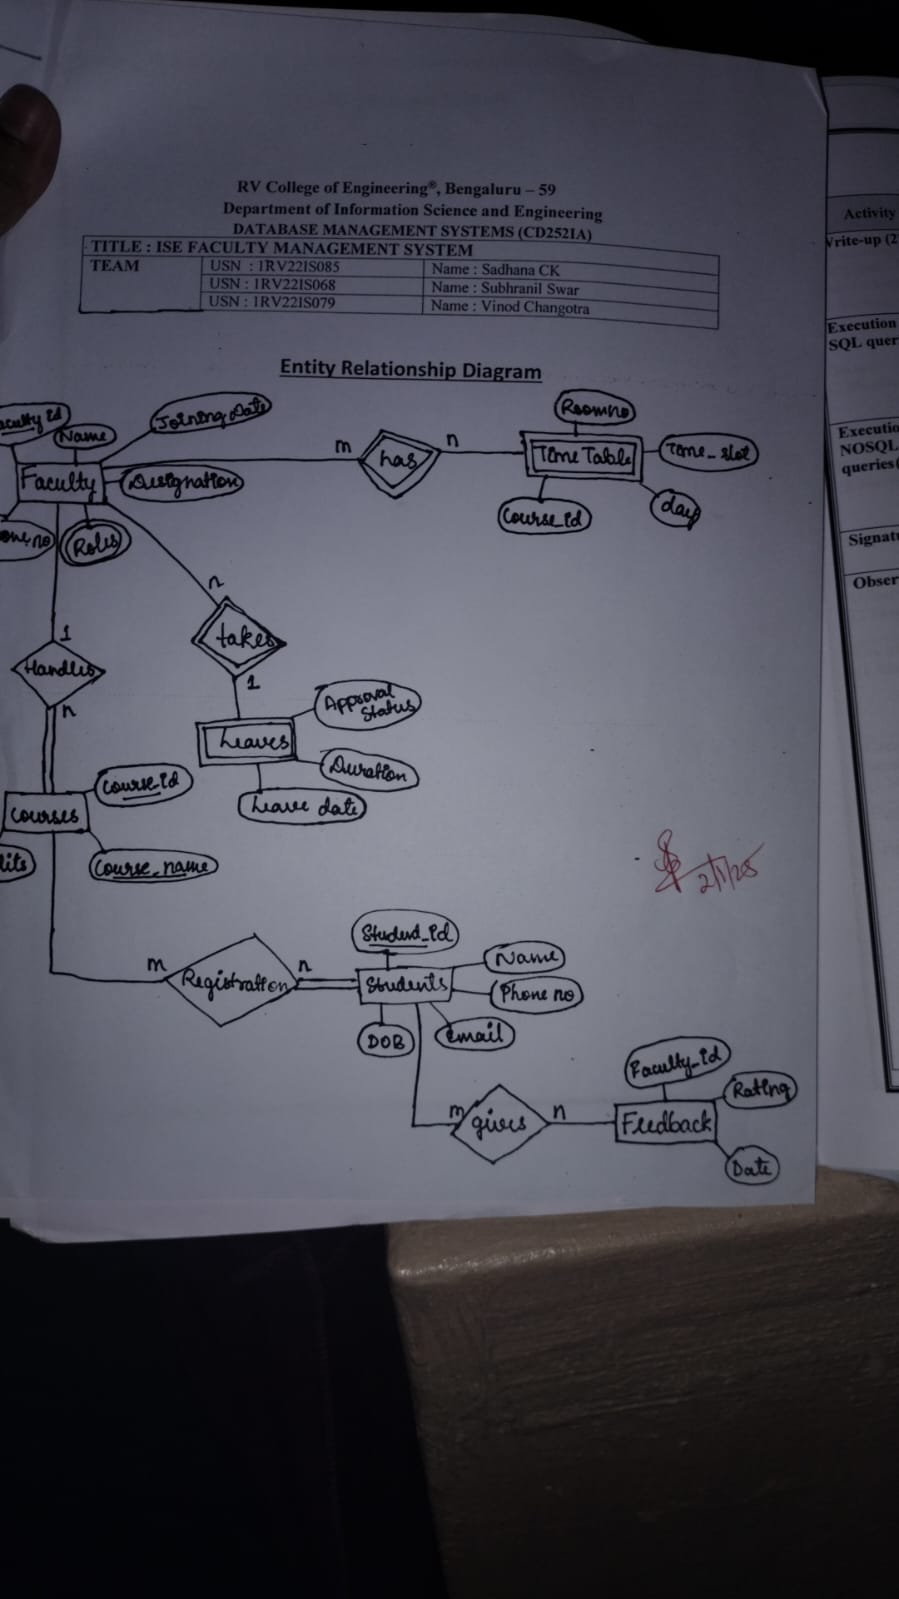 RV College of Engineering®, Bengaluru – 59
Department of Information Science and Engineering
DATABASE MANAGEMENT SYSTEMS (CD252IA)
TITLE : ISE FACULTY MANAGEMENT SYSTEM
TEAM
USN : 1RV22IS085 Name : Sadhana CK
USN : 1RV22IS068 Name : Subhranil Swar
USN : 1RV22IS079 Name : Vinod Changotra
Entity Relationship Diagram
aculty id
Name
Joining Date
Faculty
Designation
one no
Roles
m
has
n
Roomno
Time Table
Time_slot
Course_id
day
n
takes
1
Leaves
Approval
Status
Duration
Leave date
1
Handles
n
Courses
Course_id
dits
Course_name
m
Registration
n
Student_id
Students
Name
Phone no
DOB
Email
m
gives
n
Faculty_id
Feedback
Rating
Date
Activity
Write-up (2
Execution
SQL quer
Executio
NOSQL
queries(
Signatu
Obser